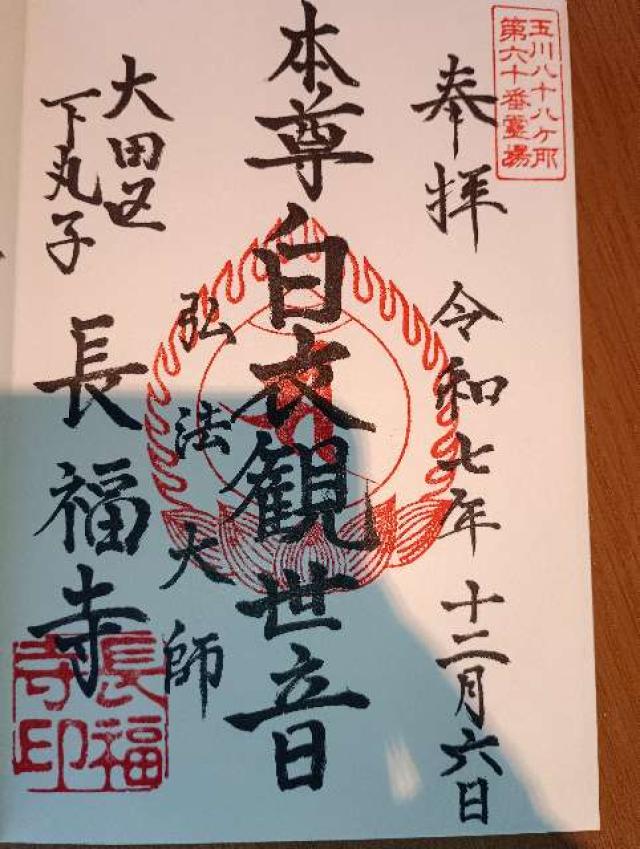 玉川八十八ヶ所
第六十番霊場
奉拝
令和七年十二月六日
本尊白衣観世音
弘法大師
大田区
下丸子
長福寺
長福
寺印